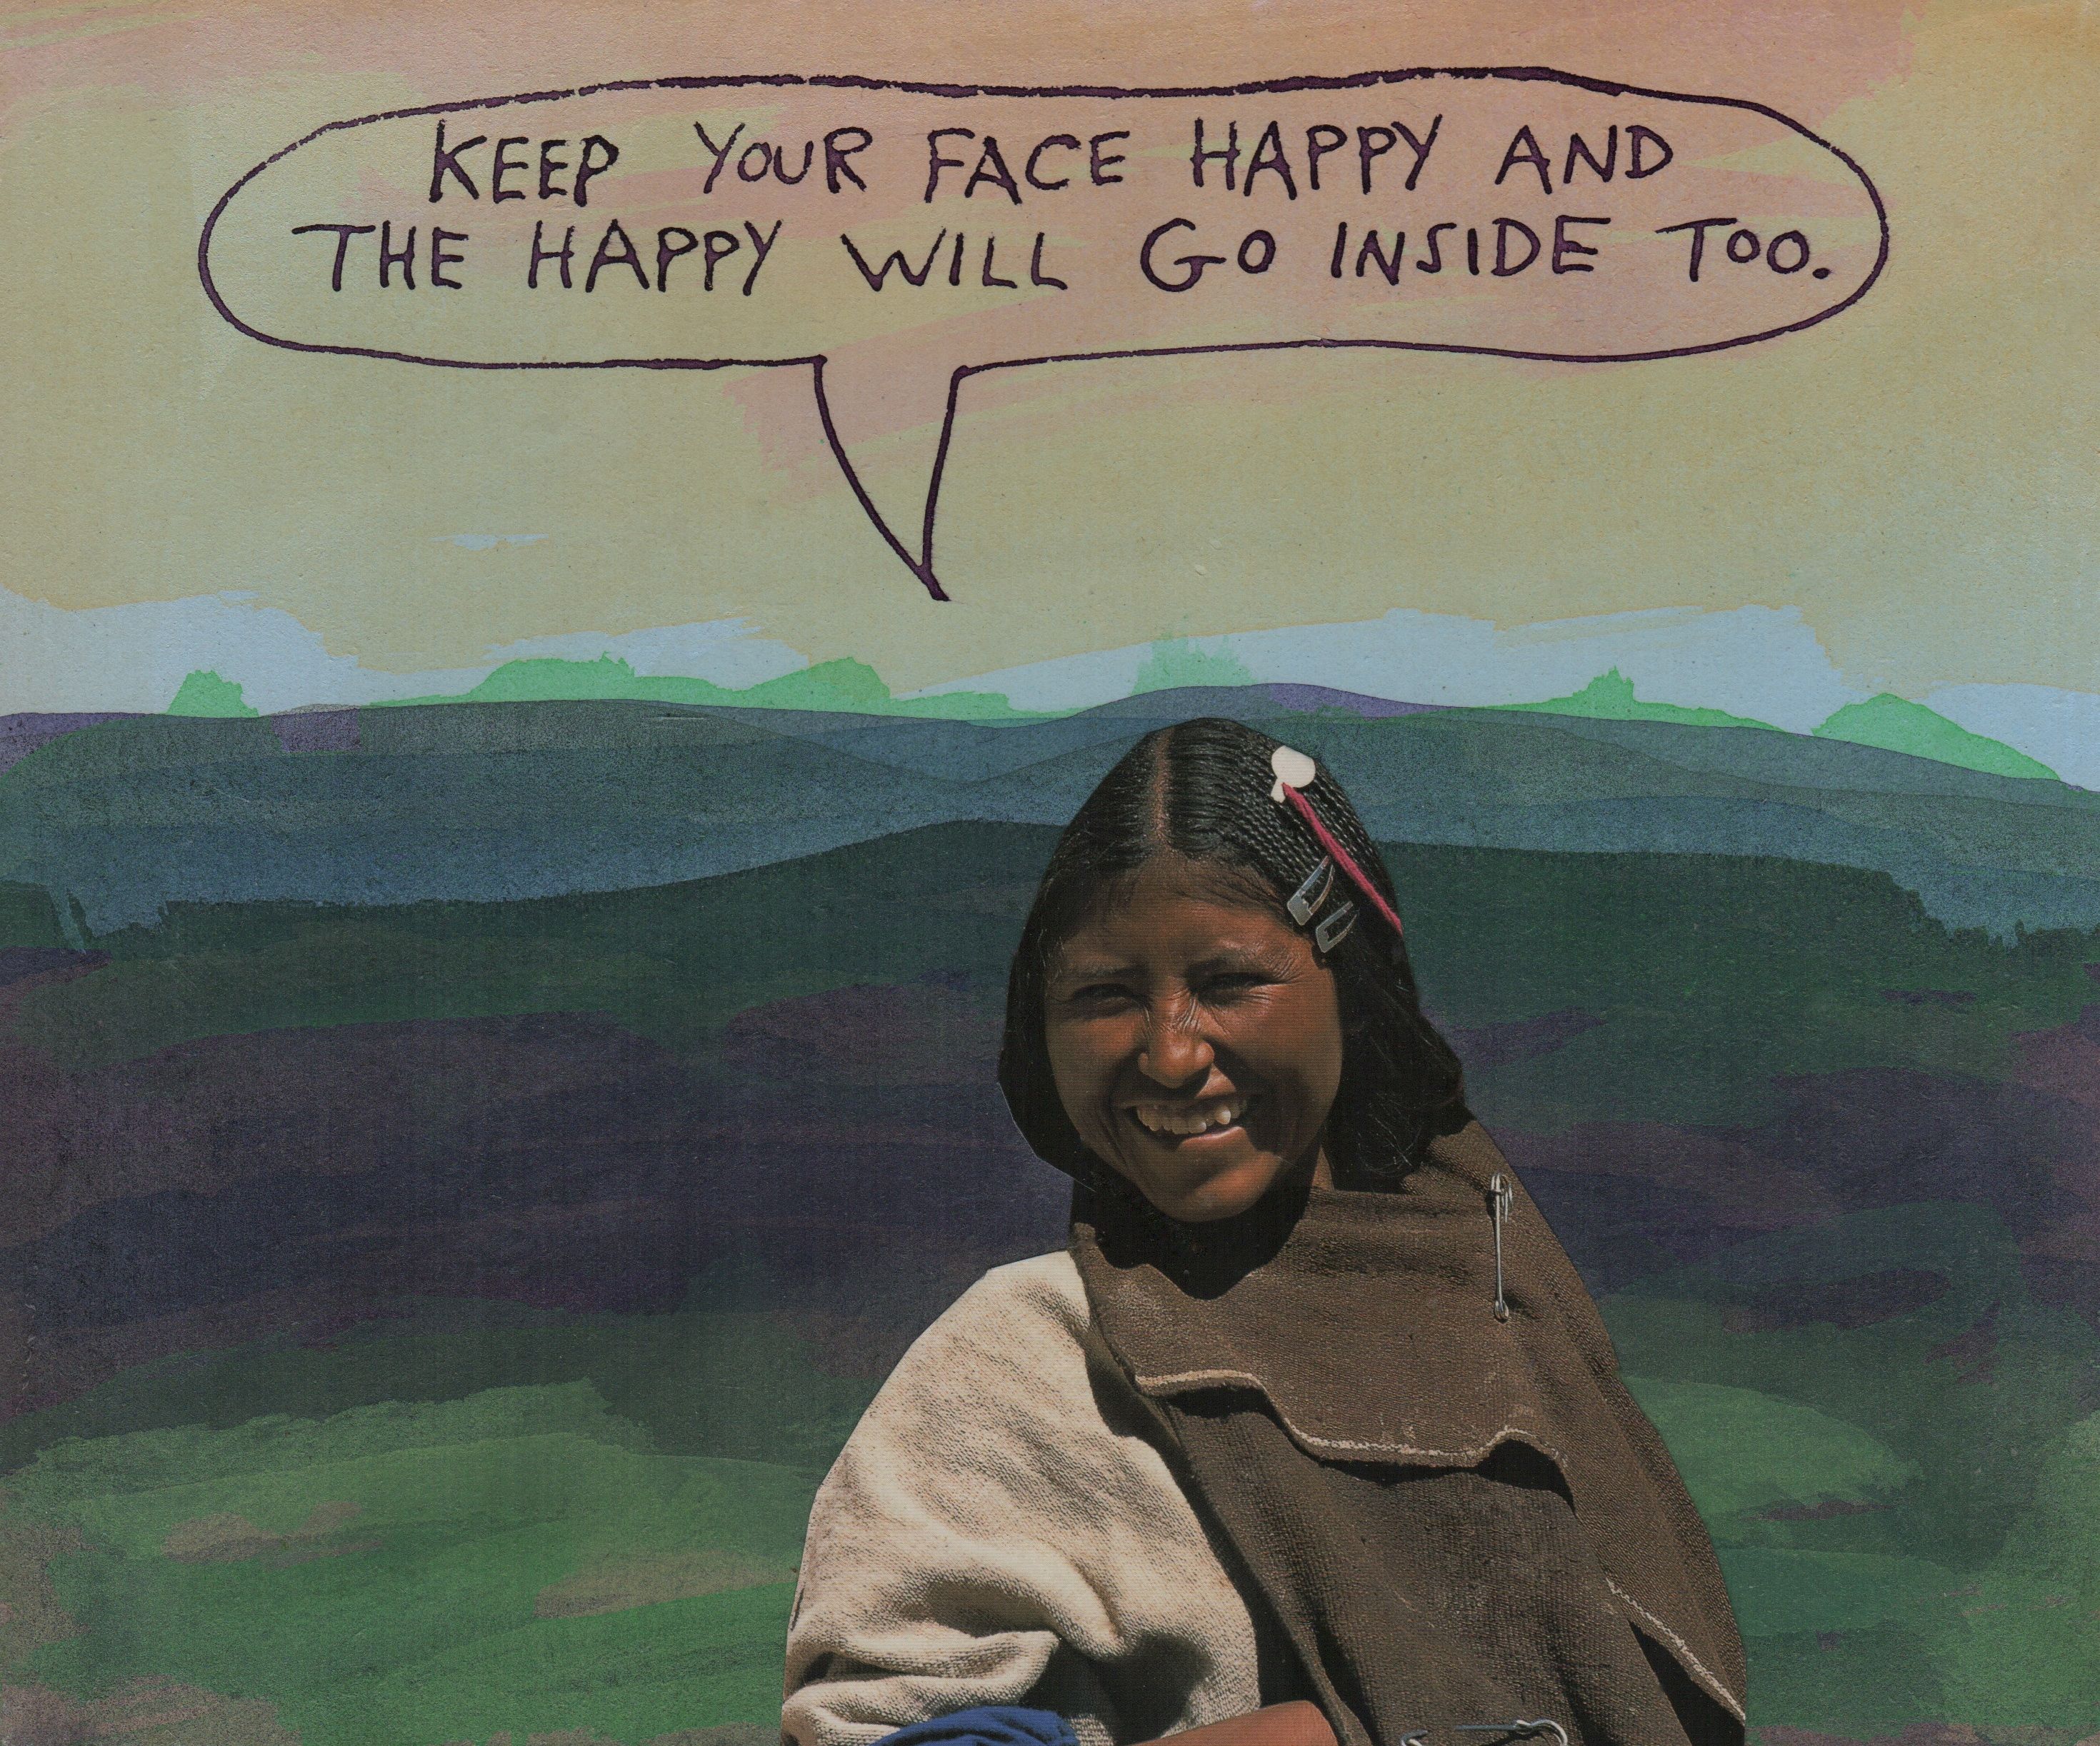 KEEP YOUR FACE HAPPY AND
THE HAPPY WILL GO INSIDE TOO.